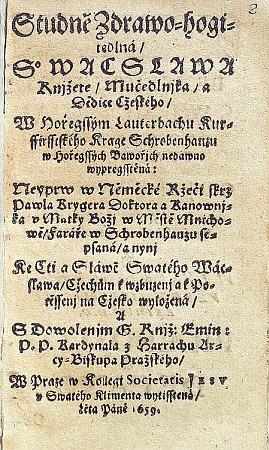 Studně Zdrawo-hogi-
tedlná/
So WACSLAWA
Knjžete/ Mučedlnjka/ a
Dědice Cžeského/
W Hořegssým Lauterbachu Kur-
ffirsstského Krage Schrobenhanzu
w Hořegssých Bawořjch nedáwno
wypregsstěná:
Neyprw w Německé Ržeči skrz
Pawla Krygera Doktora a Kanownj-
ka v Matky Božj w Městě Mnicho-
wě/ Faráře w Schrobenhanzu se-
psaná/ a nynj
Ke Cti a Sláwě Swatého Wác-
slawa/ Cžechům k wzbuzenj a k Po-
těssenj na Cžesko wyložená/
A
S Dowolenjm G. Knjž: Emin:
P. P. Kardynala z Harrachu Ar-
cy-Biskupa Pražského/
W Praze w Kollegi Societatis JESV
v Swatého Klimenta wytisstěná/
Léta Páně 1659.